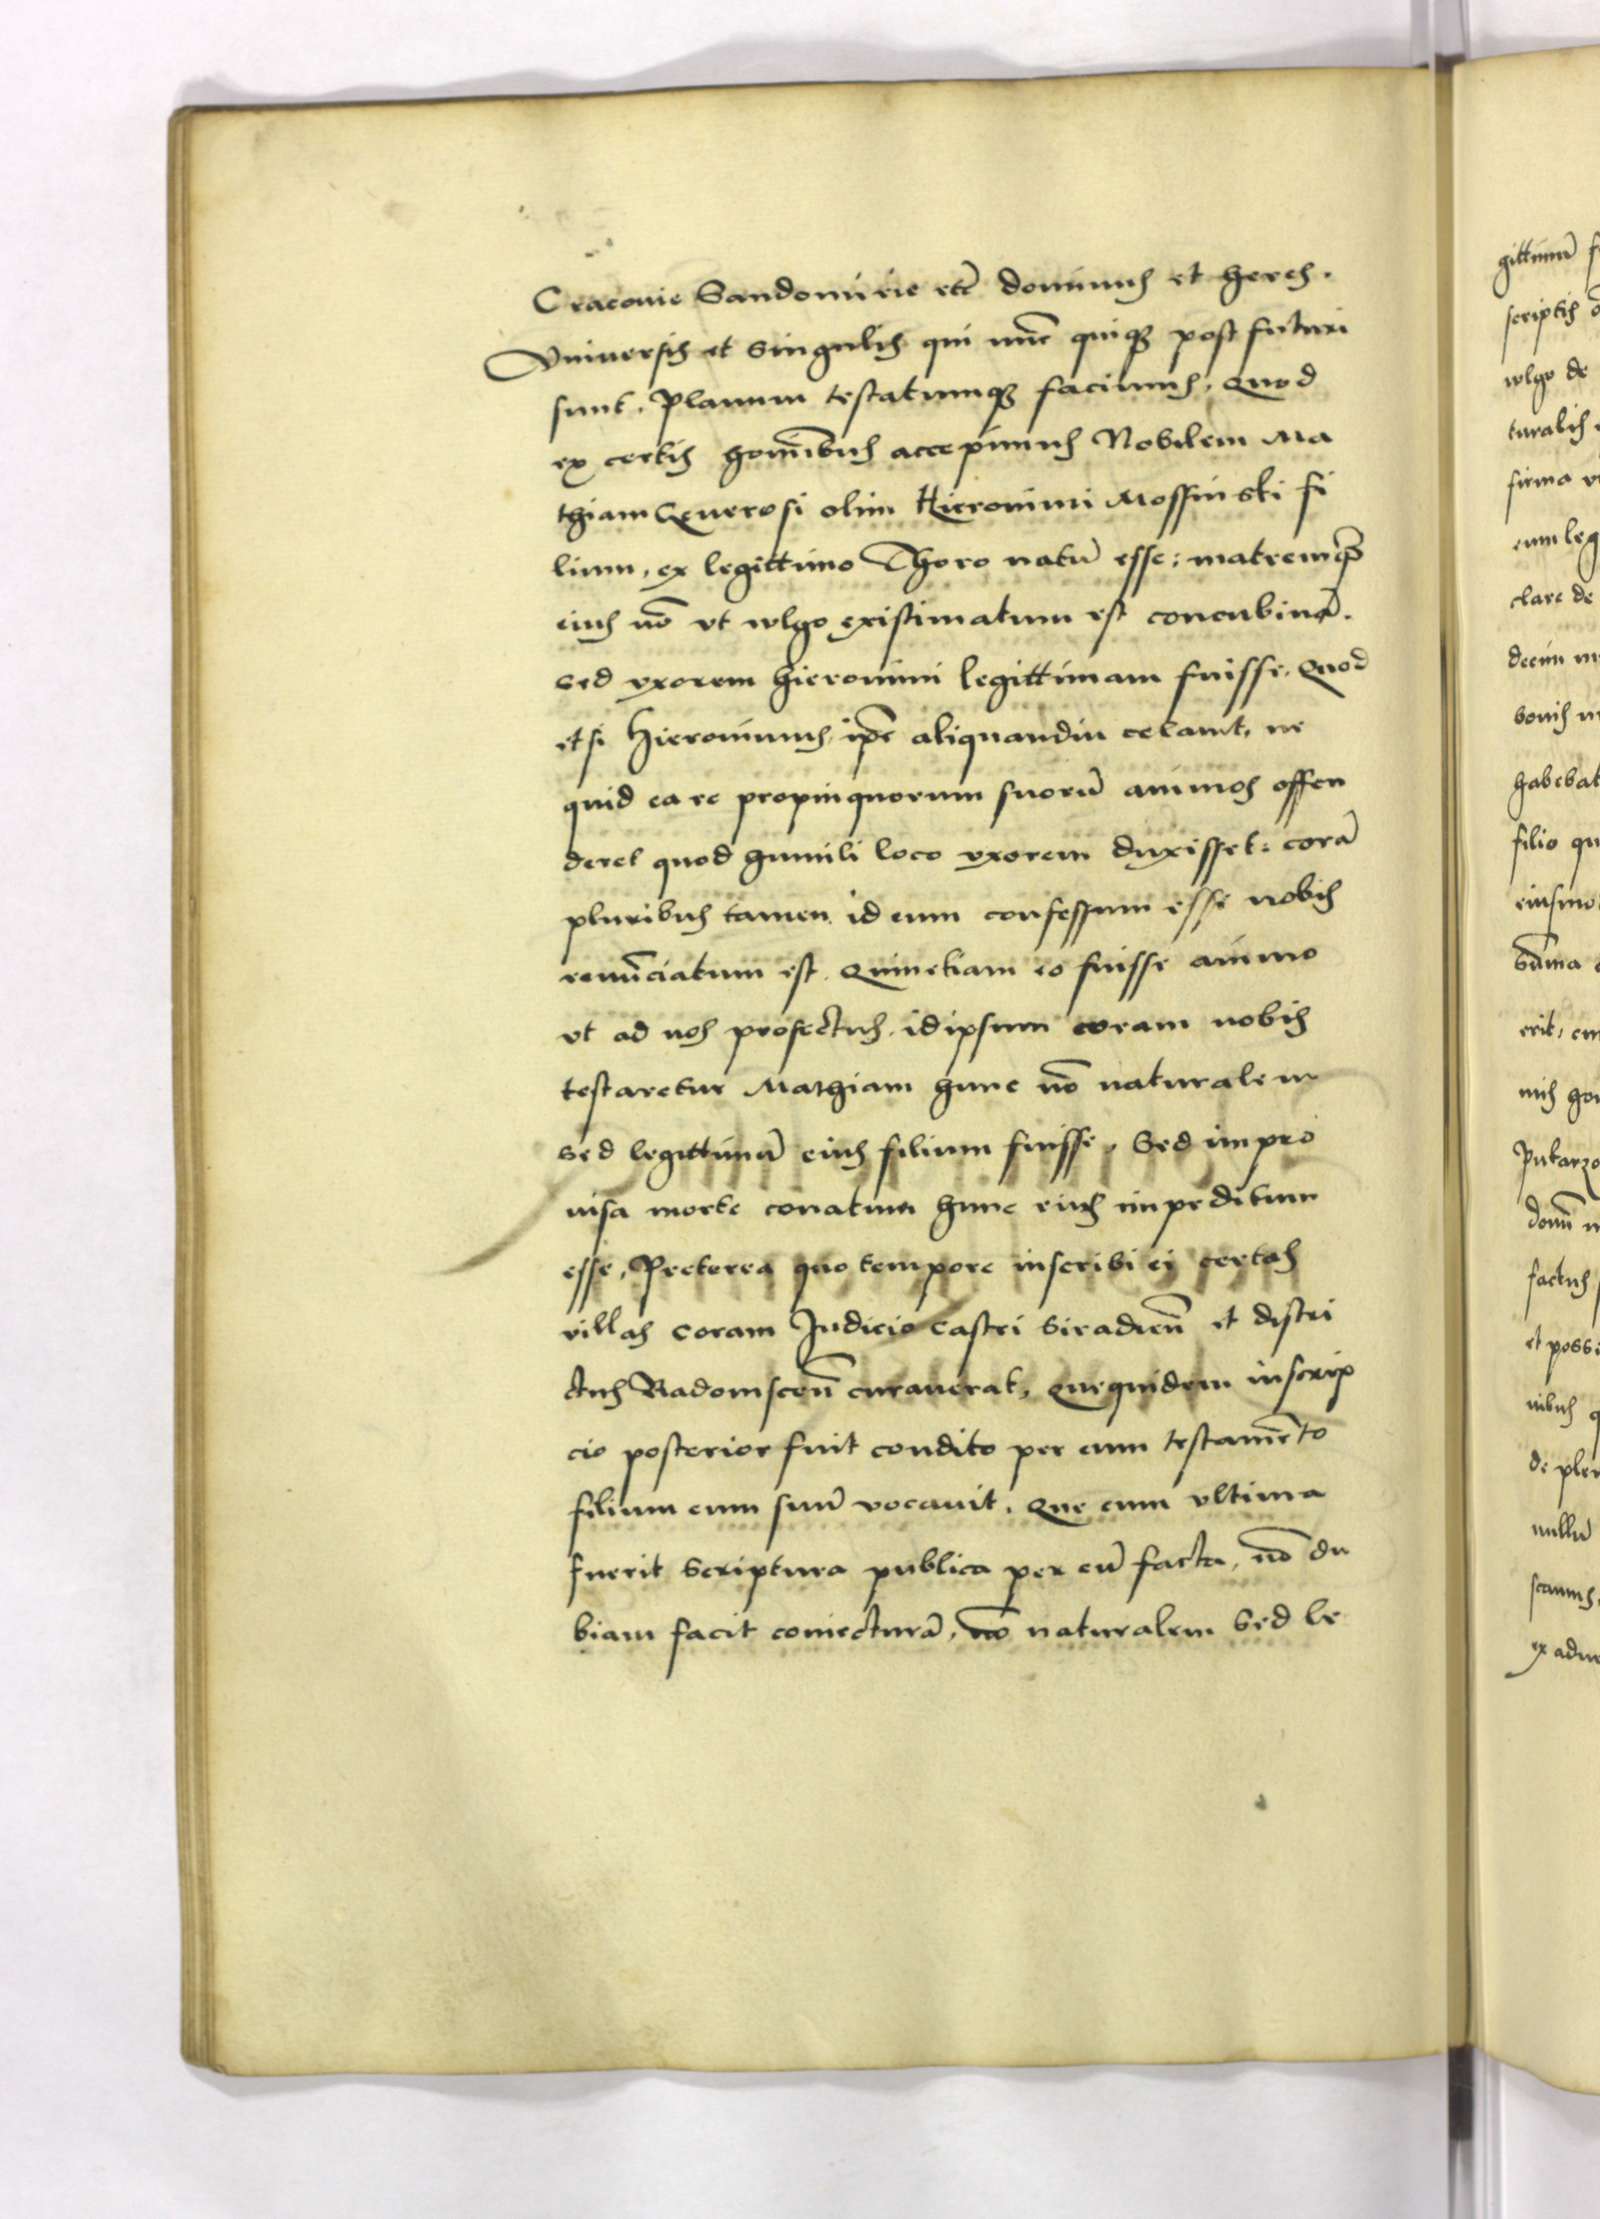 Cracovie Sandomirie etc̄ dominus et heres.
Vniversis et singulis qui nūc quiq3 post futuri
sunt. Planum testatumq3 facimus. Quod
ex certis hoīnibus accepimus Nobilem Ma
thiam Generosi olim Hieronimi Mossinski fi
lium, ex legittimo Thoro natū esse: matremq3
eius nō vt wlgo existimatum est concubinā.
sed vxorem hieronimi legittimam fuisse. Quod
etsi Hieronimus ip̄e aliquandiu celauit, ne
quid ea re propinquorum suorū animos offen
deret quod humili loco vxorem duxisset: corā
pluribus tamen id eum confessum esse nobis
renūciatum est. Quinetiam eo fuisse animo
vt ad nos profectus, id ipsum coram nobis
testaretur Mathiam hunc nō naturalem
sed legittimū eius filium fuisse. Sed impro
uisa morte conatum hunc eius impeditum
esse. Preterea quo tempore inscribi ei certas
villas coram Judicio castri Siradieñ et distri
ctus Radomsceñ curauerat, Quequidem inscrip
cio posterior fuit condito per eum testamēto
filium eum suū vocauit. Que cum vltima
fuerit scriptura publica per eū facta, nō du
biam facit coniecturā, nō naturalem Sed le
gittimū
scriptis
wlgo de
turalis
firma
eum leg
clare de
bonis
habebat
filio qu
eiusmo
erit, cu
factus
et poss
nibus q
de plen
nullū